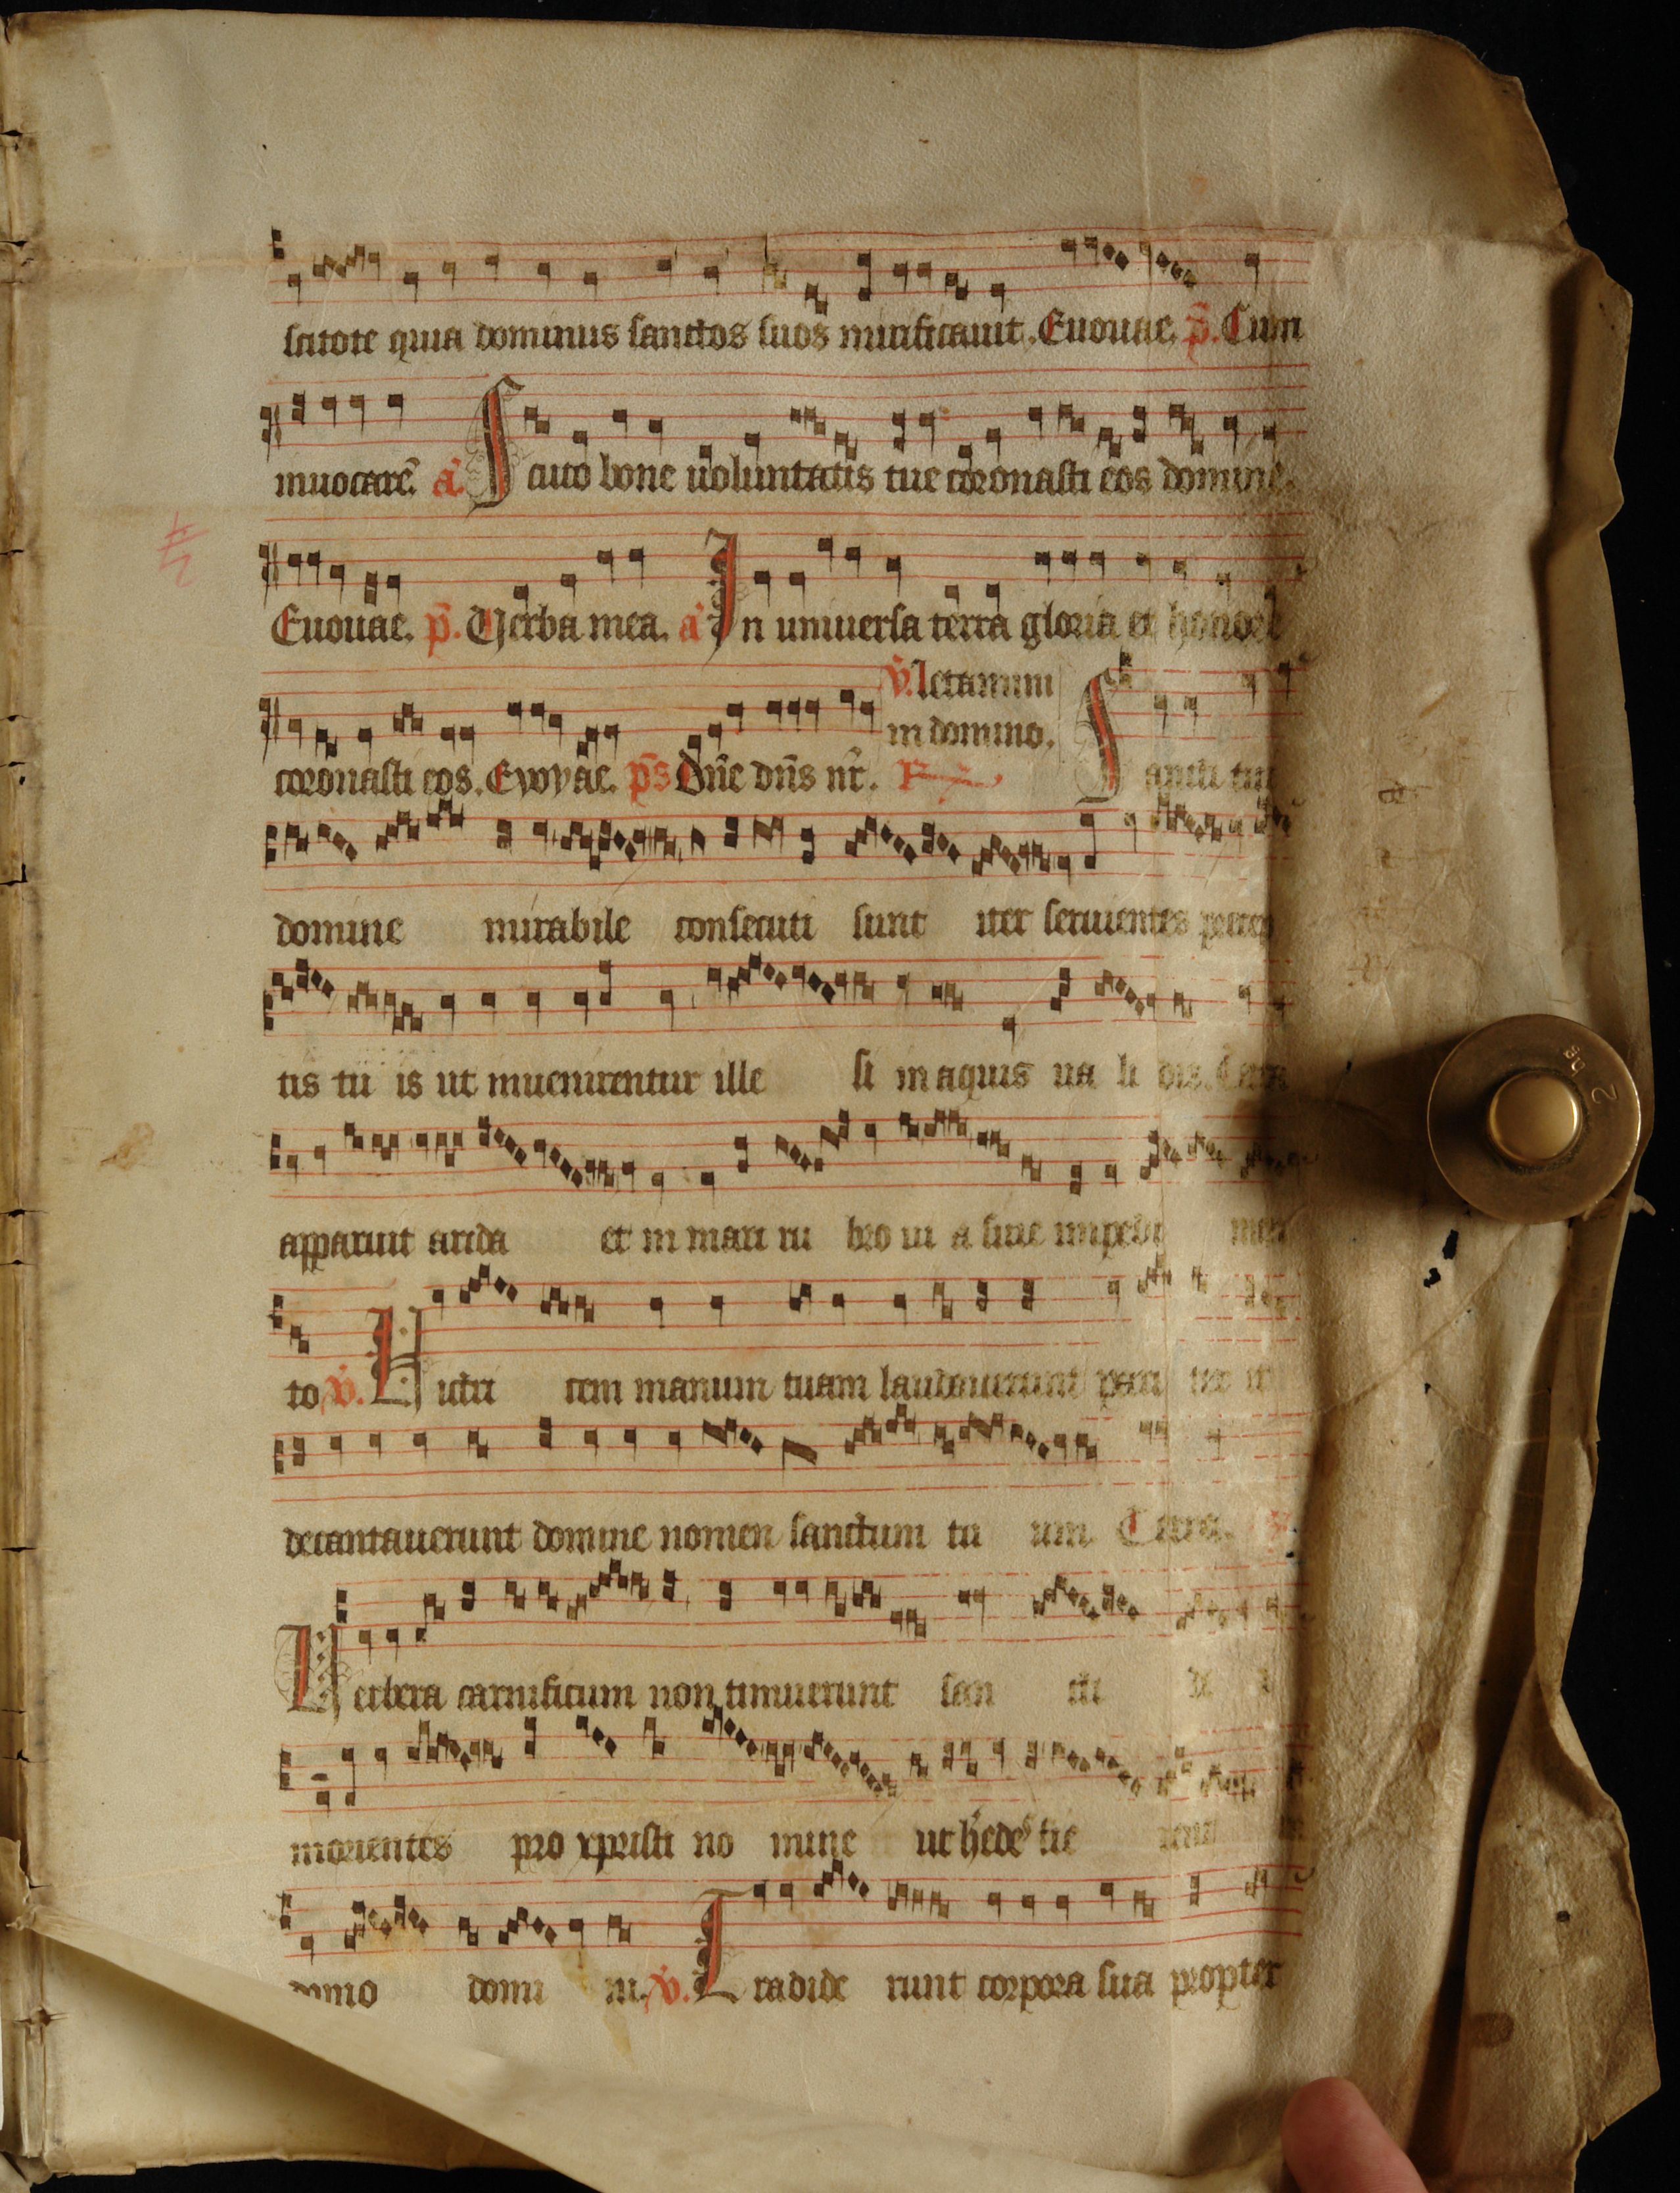 scitote quia dominus sanctos suos mirificauit. Euouae. p̄. Cum
inuocarē. a. Scuto bone uoluntatis tue coronasti eos domine.
Euouae. p̄. Verba mea. a In uniuersa terra gloria et honore
v̄. letamini
in domino.
coronasti eos. Evovae. ps Dn̄e dn̄s nr̄. R Sancti tui
domine mirabile consecuti sunt iter seruientes precep
tis tu is ut inuenirentur ille si in aquis ua li dis. Terra
apparuit arida et in mari ru bro ui a sine impedi men
to v̄. Uictri cem manum tuam laudauerunt pari ter et
decantauerunt domine nomen sanctum tu um. Terra.
Uerbera carnificum non timuerunt san cti de i
morientes pro xpristi no mine ut h̄edes fie rent in
domo domi ni. v̄. Tradide runt corpora sua propter